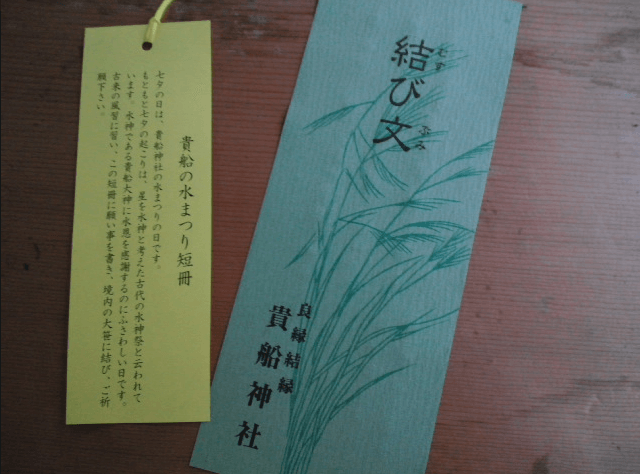 貴船の水まつり短冊
七夕の日は、貴船神社の水まつりの日です。
もともと七夕の起こりは、星を水神と考えた古代の水神祭と云われて
います。水神である貴船大神に水恩を感謝するのにふさわしい日です。
古来の風習に習い、この短冊に願い事を書き、境内の大笹に結び、ご祈
願下さい。
結び文
むす
ふみ
良縁結縁
貴船神社